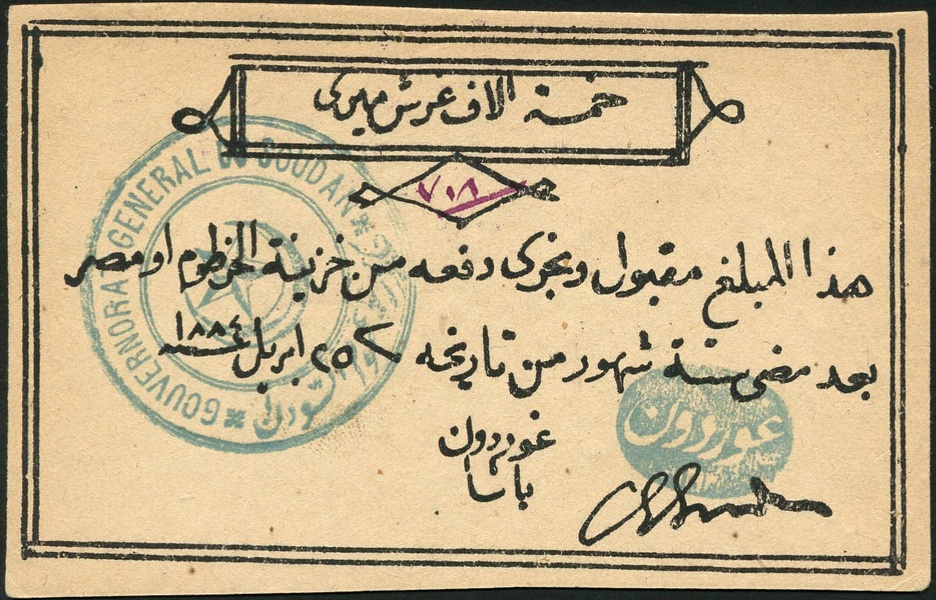 خمسة الاف غرش ميرى
٧٠٨
هذا المبلغ مقبول ويجرى دفعه من خزينة الخرطوم او مصر
بعد مضى ستة شهور من تاريخه ٢٥ ابريل سنة ١٨٨٤
غوردون
باشا
GOUVERNORAT GENERAL DU SOUDAN
السودان
غوردون